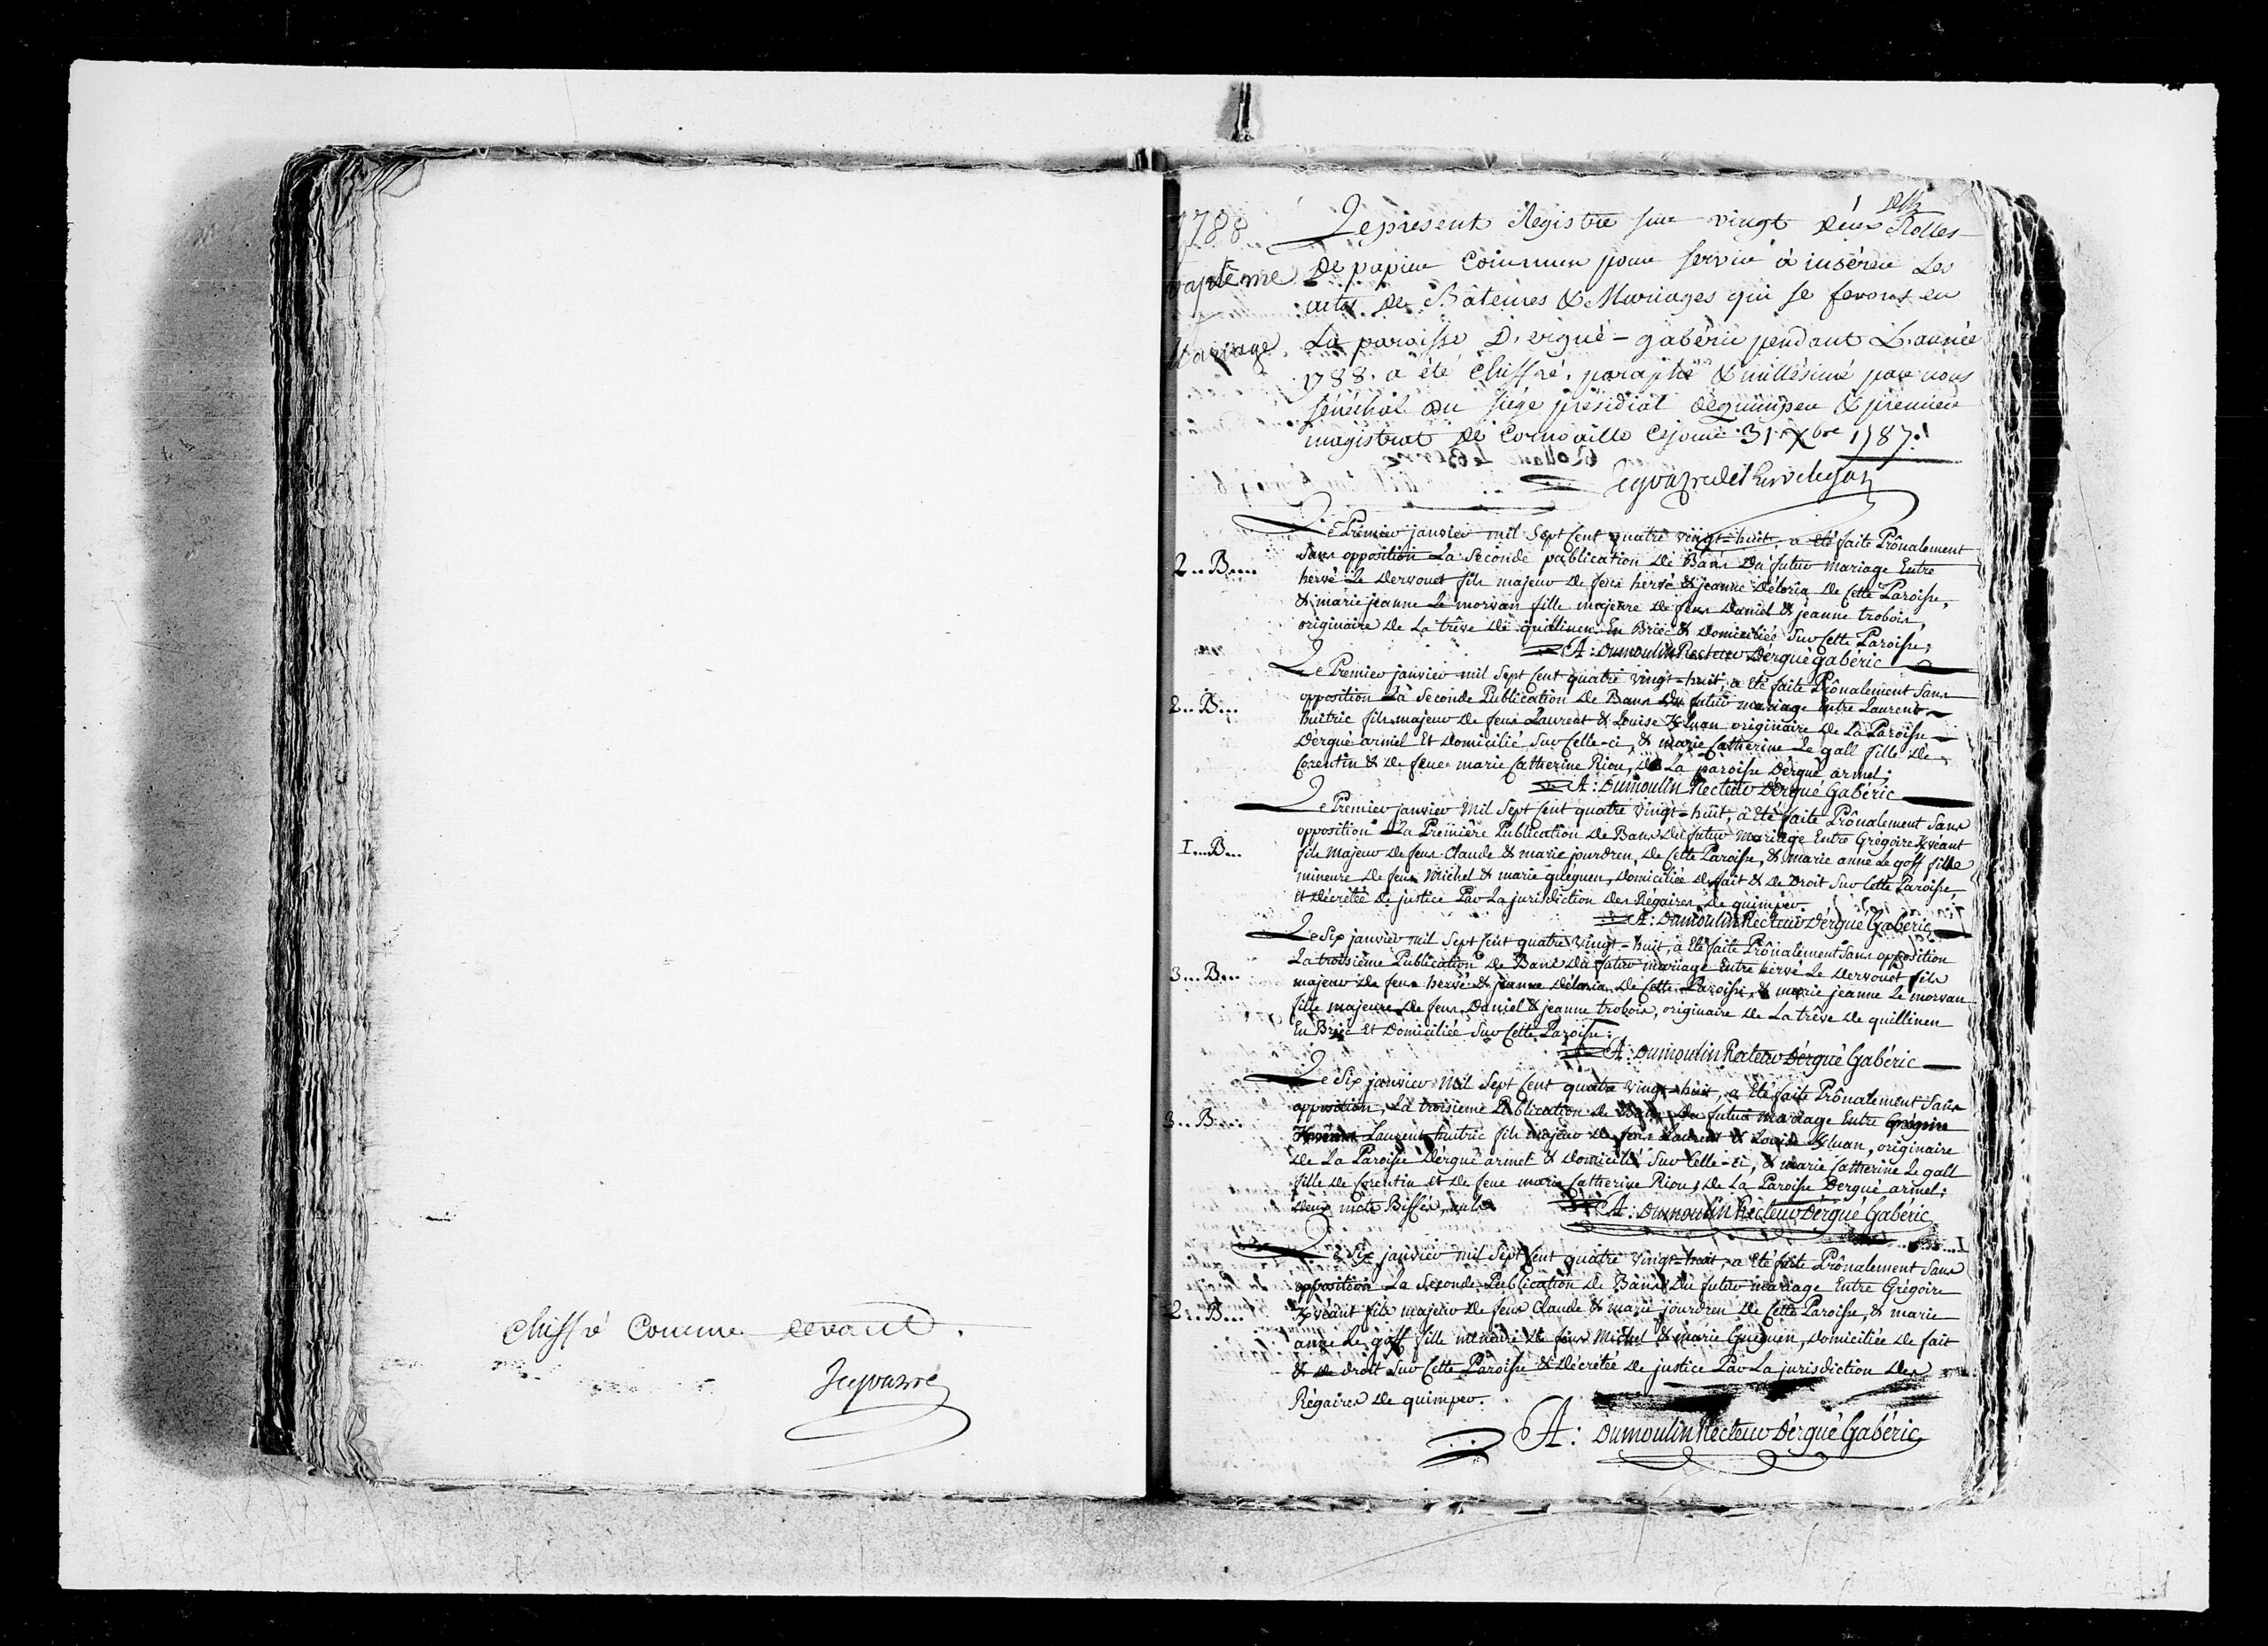 chiffré Comme devant.
Jcquazre
1788
baptême
Mariage
Le present Registre sur vingt deux Rolles
De papier Commun pour servir à insérer Les
actes de Bâtemes & Mariages qui se feront en
La paroisse D'ergué-gabéric pendant L'année
1788. a été chiffré, paraphé & millésimé par nous
sénéchal du siège présidial de quimper & premier
magistrat de Cornoaille Ce jour 31. Xbre 1787.
2..B....
Le Premier janvier mil Sept Cent quatre vingt=huit, a Eté faite Prônalement
Sans opposition La Seconde publication De Bans Du futur mariage Entre
hervé Le Dervouet fils majeur De feus hervé & jeanne Déloria De Cette Paroisse,
& marie jeanne Le morvan fille majeure De feus Daniel & jeanne trobois,
originaire De La trêve De quillinen En Briec & Domiciliée Sur Cette Paroisse;
A: Dumoulin Recteur D'ergué gabéric
2..B...
Le Premier janvier mil Sept Cent quatre vingt=huit, a Eté faite Prônalement Sans
opposition La Seconde Publication De Bans Du futur mariage Entre Laurent
huitric fils majeur De feus Laurent & Louise Kluan originaire De La Paroisse
D'ergué armel Et Domicilié Sur Celle-ci, & marie Catherine Le gall fille De
Corentin & De feue marie Catherine Riou, De La paroisse D'ergué armel;
A: Dumoulin Recteur D'ergué Gabéric
1...B...
Le Premier janvier Mil Sept Cent quatre vingt=huit, a Eté faite Prônalement Sans
opposition La Première Publication De Bans Du futur Mariage Entre Grégoire Kvéant
fils Majeur De feus Claude & marie jourdren, De Cette Paroisse, & marie anne Le goff fille
mineure De feus Michel & marie guéguen, Domiciliée De fait & De Droit Sur Cette Paroisse,
et Décrétée De justice Par La jurisdiction Des Régaires De quimper.
A: Dumoulin Recteur D'ergué Gabéric
3...B...
Le Six janvier mil Sept Cent quatre vingt=huit, a Eté faite Prônalement Sans opposition
La troisième Publication De Bans Du futur mariage Entre hervé Le Dervouet fils
majeur De feus hervé & jeanne Déloria De Cette Paroisse, & marie jeanne Le morvan
fille majeure De feus Daniel & jeanne trobois, originaire De La trêve De quillinen
En Briec Et Domiciliée Sur Cette Paroisse;
A: Dumoulin Recteur D'ergué Gabéric
3..B...
Le Six janvier Mil Sept Cent quatre vingt=huit, a Eté faite Prônalement Sans
opposition, La troisième Publication De Bans Du futur mariage Entre Grégoire
Kvéant Laurent huitric fils majeur De feus Laurent & Louise Kluan, originaire
De La Paroisse D'ergué armel & Domicilié Sur Celle-ci, & marie Catherine Le gall
fille De Corentin et De feue marie Catherine Riou, De La Paroisse D'ergué armel;
Deux mots Biffés, nuls
A: Dumoulin Recteur D'ergué Gabéric
2..B...
Le Six janvier mil Sept Cent quatre vingt=huit, a Eté faite Prônalement Sans
opposition La Seconde Publication De Bans Du futur mariage Entre Grégoire
Kvéant fils majeur De feus Claude & marie jourdren De Cette Paroisse, & marie
anne Le goff fille mineure De feus Michel & marie Guéguen, Domiciliée De fait
& De droit Sur Cette Paroisse & Décrétée De justice Par La jurisdiction Des
Régaires De quimper.
A: Dumoulin Recteur D'ergué Gabéric